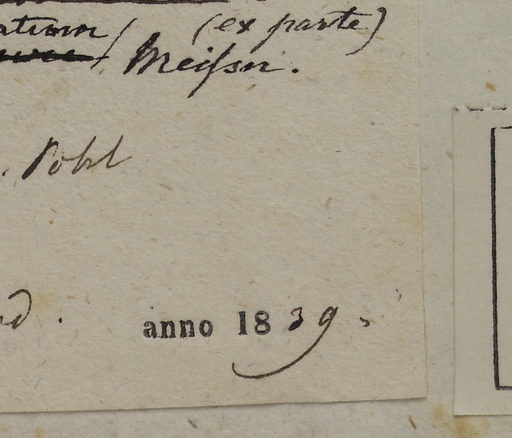 (ex parte)
Meissn.
. Pohl
d .
anno 1839.